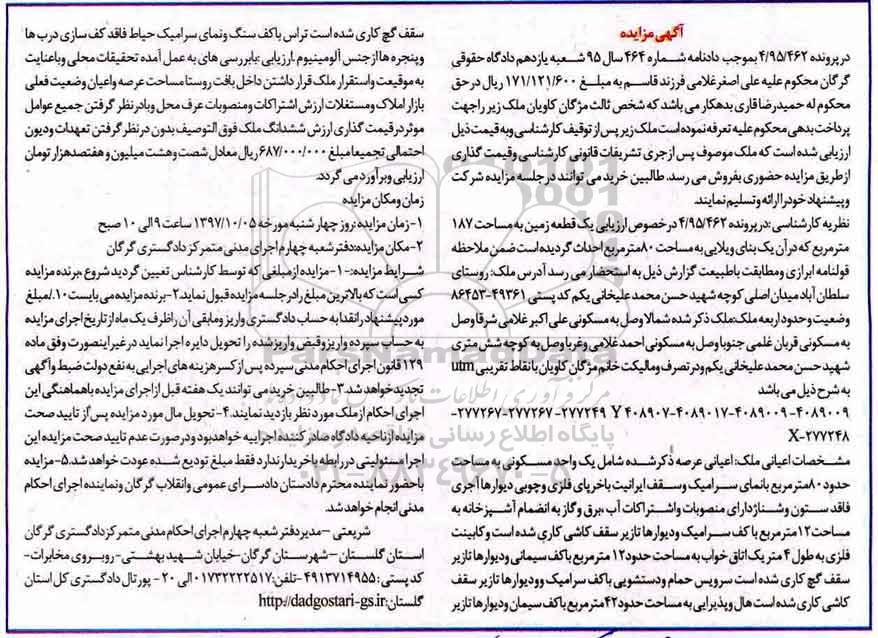 آگهی مزایده
در پرونده ۴/۹۵/۴۶۲ بموجب دادنامه شماره ۴۶۴ سال ۹۵ شعبه یازدهم دادگاه حقوقی
گرگان محکوم علیه علی اصغر غلامی فرزند قاسم به مبلغ ۱۷۱/۱۲۱/۶۰۰ ریال در حق
محکوم له حمیدرضا قاری بدهکار می باشد که شخص ثالث مژگان کاویان ملک زیر را جهت
پرداخت بدهی محکوم علیه تعرفه نموده است ملک زیر پس از توقیف کارشناسی و به قیمت ذیل
ارزیابی شده است که ملک موصوف پس از جری تشریفات قانونی کارشناسی و قیمت گذاری
از طریق مزایده حضوری بفروش می رسد. طالبین خرید می توانند در جلسه مزایده شرکت
و پیشنهاد خود را ارائه و تسلیم نمایند.
نظریه کارشناسی: در پرونده ۴/۹۵/۴۶۲ در خصوص ارزیابی یک قطعه زمین به مساحت ۱۸۷
متر مربع که در آن یک بنای ویلایی به مساحت ۸۰ متر مربع احداث گردیده است ضمن ملاحظه
قولنامه ابرازی و مطابقت با طبیعت گزارش ذیل به استحضار می رسد آدرس ملک: روستای
سلطان آباد میدان اصلی کوچه شهید حسن محمد علیخانی یکم کد پستی ۴۹۳۶۱-۸۶۴۵۳
وضعیت و حدود اربعه ملک: ملک ذکر شده شمالا وصل به مسکونی علی اکبر غلامی شرقا وصل
به مسکونی قربان غلمی جنوبا وصل به مسکونی احمد غلامی و غربا وصل به کوچه شش متری
شهید حسن محمد علیخانی یکم و در تصرف و مالکیت خانم مژگان کاویان با نقاط تقریبی utm
به شرح ذیل می باشد
۴۰۸۹۰۰۹-۴۰۸۹۰۰۹-۴۰۸۹۰۱۷-۴۰۸۹۰۷ Y ۲۷۷۲۴۹-۲۷۷۲۶۷-۲۷۷۲۶۷-
X-۲۷۷۲۴۸
مشخصات اعیانی ملک: اعیانی عرصه ذکر شده شامل یک واحد مسکونی به مساحت
حدود ۸۰ متر مربع با نمای سرامیک و سقف ایرانیت با خرپای فلزی و چوبی دیوارها آجری
فاقد ستون و شناژ دارای منصوبات و اشتراکات آب، برق و گاز به انضمام آشپزخانه به
مساحت ۱۲ متر مربع با کف سرامیک و دیوارها تا زیر سقف کاشی کاری شده است و کابینت
فلزی به طول ۴ متر یک اتاق خواب به مساحت حدود ۱۲ متر مربع با کف سیمانی و دیوارها تا زیر
سقف گچ کاری شده است سرویس حمام و دستشویی با کف سرامیک و دیوارها تا زیر سقف
کاشی کاری شده است هال و پذیرایی به مساحت حدود ۴۲ متر مربع با کف سیمان و دیوارها تا زیر
سقف گچ کاری شده است تراس با کف سنگ و نمای سرامیک حیاط فاقد کف سازی درب ها
و پنجره ها از جنس آلومینیوم. ارزیابی: با بررسی های به عمل آمده تحقیقات محلی و با عنایت
به موقعیت و استقرار ملک قرار داشتن داخل بافت روستا مساحت عرصه و اعیان وضعیت فعلی
بازار املاک و مستغلات ارزش اشتراکات و منصوبات عرف محل و با در نظر گرفتن جمیع عوامل
موثر در قیمت گذاری ارزش ششدانگ ملک فوق التوصیف بدون در نظر گرفتن تعهدات و دیون
احتمالی تجمیعا مبلغ ۶۸۷/۰۰۰/۰۰۰ ریال معادل شصت و هشت میلیون و هفتصد هزار تومان
ارزیابی و برآورد می گردد.
زمان و مکان مزایده
۱- زمان مزایده: روز چهار شنبه مورخه ۱۳۹۷/۱۰/۰۵ ساعت ۹ الی ۱۰ صبح
۲- مکان مزایده: دفتر شعبه چهارم اجرای مدنی متمرکز دادگستری گرگان
شرایط مزایده: ۱- مزایده از مبلغی که توسط کارشناس تعیین گردید شروع، برنده مزایده
کسی است که بالاترین مبلغ را در جلسه مزایده قبول نماید. ۲- برنده مزایده می بایست ۱۰٪ مبلغ
مورد پیشنهاد را نقدا به حساب دادگستری واریز و مابقی آن را ظرف یک ماه از تاریخ اجرای مزایده
به حساب سپرده واریز و قبض واریز شده را تحویل دایره اجرا نماید در غیر اینصورت وفق ماده
۱۲۹ قانون اجرای احکام مدنی سپرده پس از کسر هزینه های اجرایی به نفع دولت ضبط و آگهی
تجدید خواهد شد. ۳- طالبین خرید می توانند یک هفته قبل از اجرای مزایده با هماهنگی این
اجرای احکام از ملک مورد نظر بازدید نمایند. ۴- تحویل مال مورد مزایده پس از تایید صحت
مزایده از ناحیه دادگاه صادر کننده اجراییه خواهد بود و در صورت عدم تایید صحت مزایده این
اجرا مسئولیتی در رابطه با خریدار ندارد فقط مبلغ تودیع شده عودت خواهد شد. ۵- مزایده
با حضور نماینده محترم دادستان دادسرای عمومی و انقلاب گرگان و نماینده اجرای احکام
مدنی انجام خواهد شد.
شریعتی - مدیر دفتر شعبه چهارم اجرای احکام مدنی متمرکز دادگستری گرگان
استان گلستان - شهرستان گرگان - خیابان شهید بهشتی - روبروی مخابرات -
کد پستی: ۴۹۱۳۷۱۴۹۵۵ - تلفن: ۰۱۷۳۲۲۲۲۵۱۷ الی ۲۰ - پورتال دادگستری کل استان
گلستان: http://dadgostari-gs.ir
ParsNamadData
پایگاه اطلاع رسانی